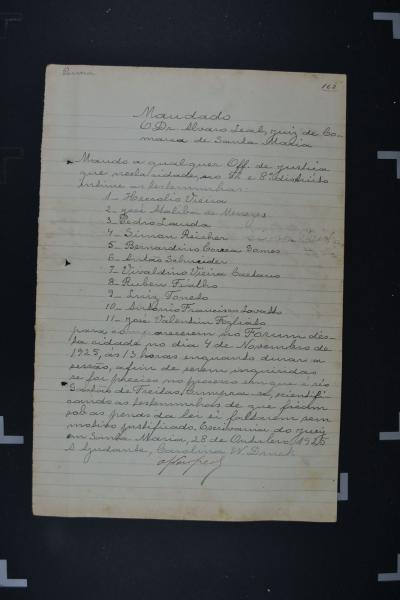 Mandado
O Dr. Alvaro Leal, juiz de Co-
marca de Santa Maria
Mando a qualquer Off. de justiça
que nesta cidade, no 1º e 8º districto
intime as testemunhas:
1 - Hercilio Vieira
2 - José Maliba de Menezes
3 - Pedro Lauda
4 - Simon Reicher
5 - Bernardino Correa Gomes
6 - Antão Schneider
7 - Vivaldino Vieira Caetano
8 - Ruben Fialho
9 - Luiz Toneto
10 - Antonio Francisco Lovatto
11 - José Valentim Fogliato
para comparecerem no Forum des-
ta cidade no dia 4 de Novembro de
1925, as 13 horas enquanto durar a
sessão, afim de serem inquiridas
se for preciso no processo em que é réo
de Freitas. Cumpra-se, scientifi-
cando as testemunhas de que ficam
sob as penas da lei si faltarem sem
motivo justificado. Escrivania do jury
em Santa Maria, 28 de Outubro, 1925
O Ajudante, Carolina W. Druck